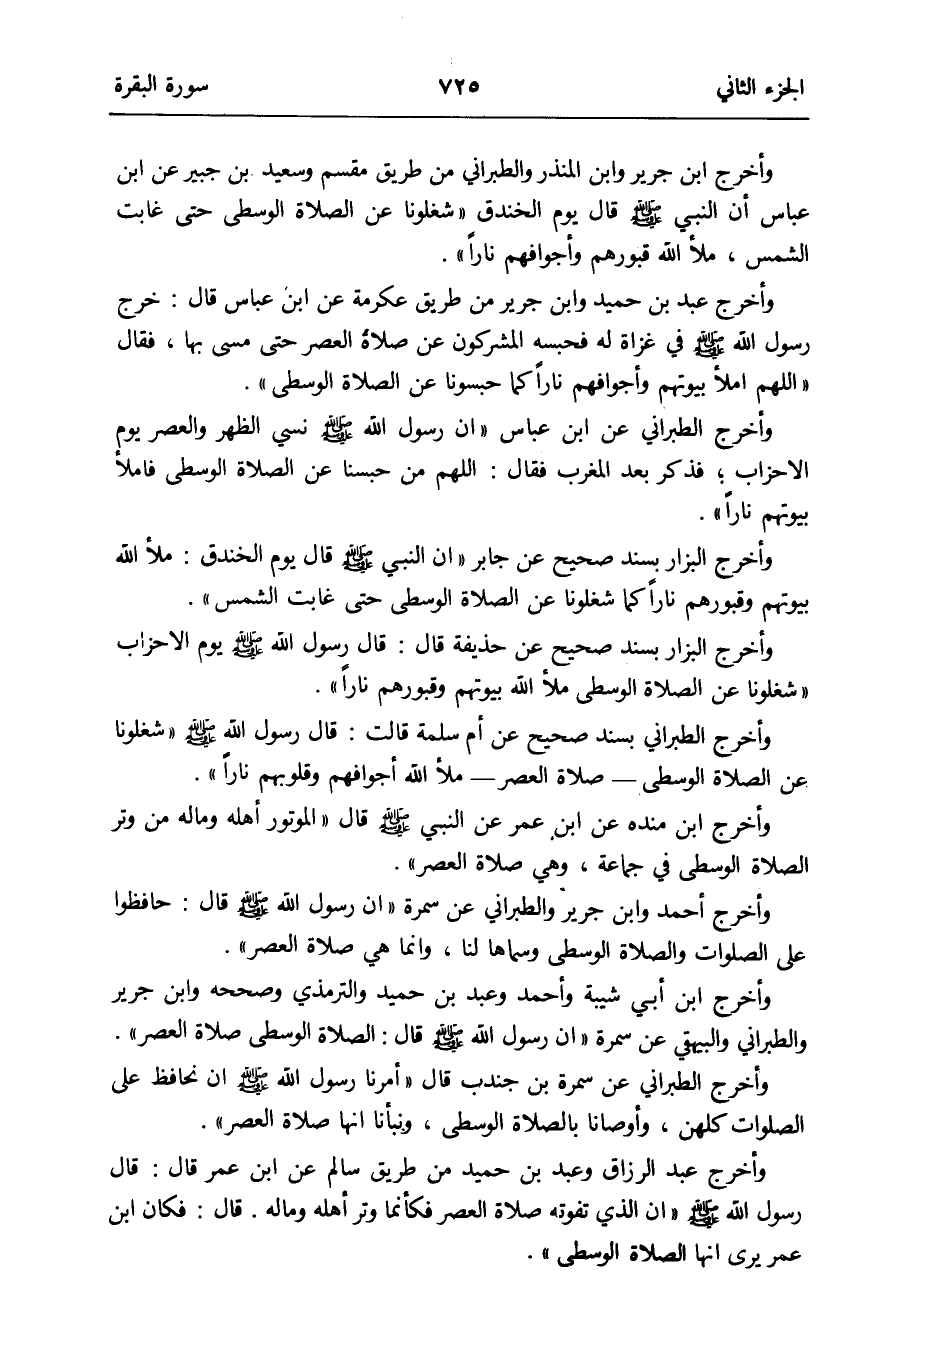 الجزء الثاني ٧٢٥ سورة البقرة
وأخرج ابن جرير وابن المنذر والطبراني من طريق مقسم وسعيد بن جبير عن ابن
عباس أن النبي ﷺ قال يوم الخندق « شغلونا عن الصلاة الوسطى حتى غابت
الشمس ، ملأ الله قبورهم وأجوافهم ناراً » .
وأخرج عبد بن حميد وابن جرير من طريق عكرمة عن ابن عباس قال : خرج
رسول الله ﷺ في غزاة له فحبسه المشركون عن صلاة العصر حتى مسى بها ، فقال
« اللهم املأ بيوتهم وأجوافهم ناراً كما حبسونا عن الصلاة الوسطى » .
وأخرج الطبراني عن ابن عباس « ان رسول الله ﷺ نسي الظهر والعصر يوم
الاحزاب ، فذكر بعد المغرب فقال : اللهم من حبسنا عن الصلاة الوسطى فاملأ
بيوتهم ناراً » .
وأخرج البزار بسند صحيح عن جابر « ان النبي ﷺ قال يوم الخندق : ملأ الله
بيوتهم وقبورهم ناراً كما شغلونا عن الصلاة الوسطى حتى غابت الشمس » .
وأخرج البزار بسند صحيح عن حذيفة قال : قال رسول الله ﷺ يوم الاحزاب
« شغلونا عن الصلاة الوسطى ملأ الله بيوتهم وقبورهم ناراً » .
وأخرج الطبراني بسند صحيح عن أم سلمة قالت : قال رسول الله ﷺ « شغلونا
عن الصلاة الوسطى — صلاة العصر — ملأ الله أجوافهم وقلوبهم ناراً » .
وأخرج ابن منده عن ابن عمر عن النبي ﷺ قال « الموتور أهله وماله من وتر
الصلاة الوسطى في جماعة ، وهي صلاة العصر » .
وأخرج أحمد وابن جرير والطبراني عن سمرة « ان رسول الله ﷺ قال : حافظوا
على الصلوات والصلاة الوسطى وسماها لنا ، وانما هي صلاة العصر » .
وأخرج ابن أبي شيبة وأحمد وعبد بن حميد والترمذي وصححه وابن جرير
والطبراني والبيهقي عن سمرة « ان رسول الله ﷺ قال : الصلاة الوسطى صلاة العصر » .
وأخرج الطبراني عن سمرة بن جندب قال « أمرنا رسول الله ﷺ ان نحافظ على
الصلوات كلهن ، وأوصانا بالصلاة الوسطى ، ونبأنا انها صلاة العصر » .
وأخرج عبد الرزاق وعبد بن حميد من طريق سالم عن ابن عمر قال : قال
رسول الله ﷺ « ان الذي تفوته صلاة العصر فكأنما وتر أهله وماله . قال : فكان ابن
عمر يرى انها الصلاة الوسطى » .